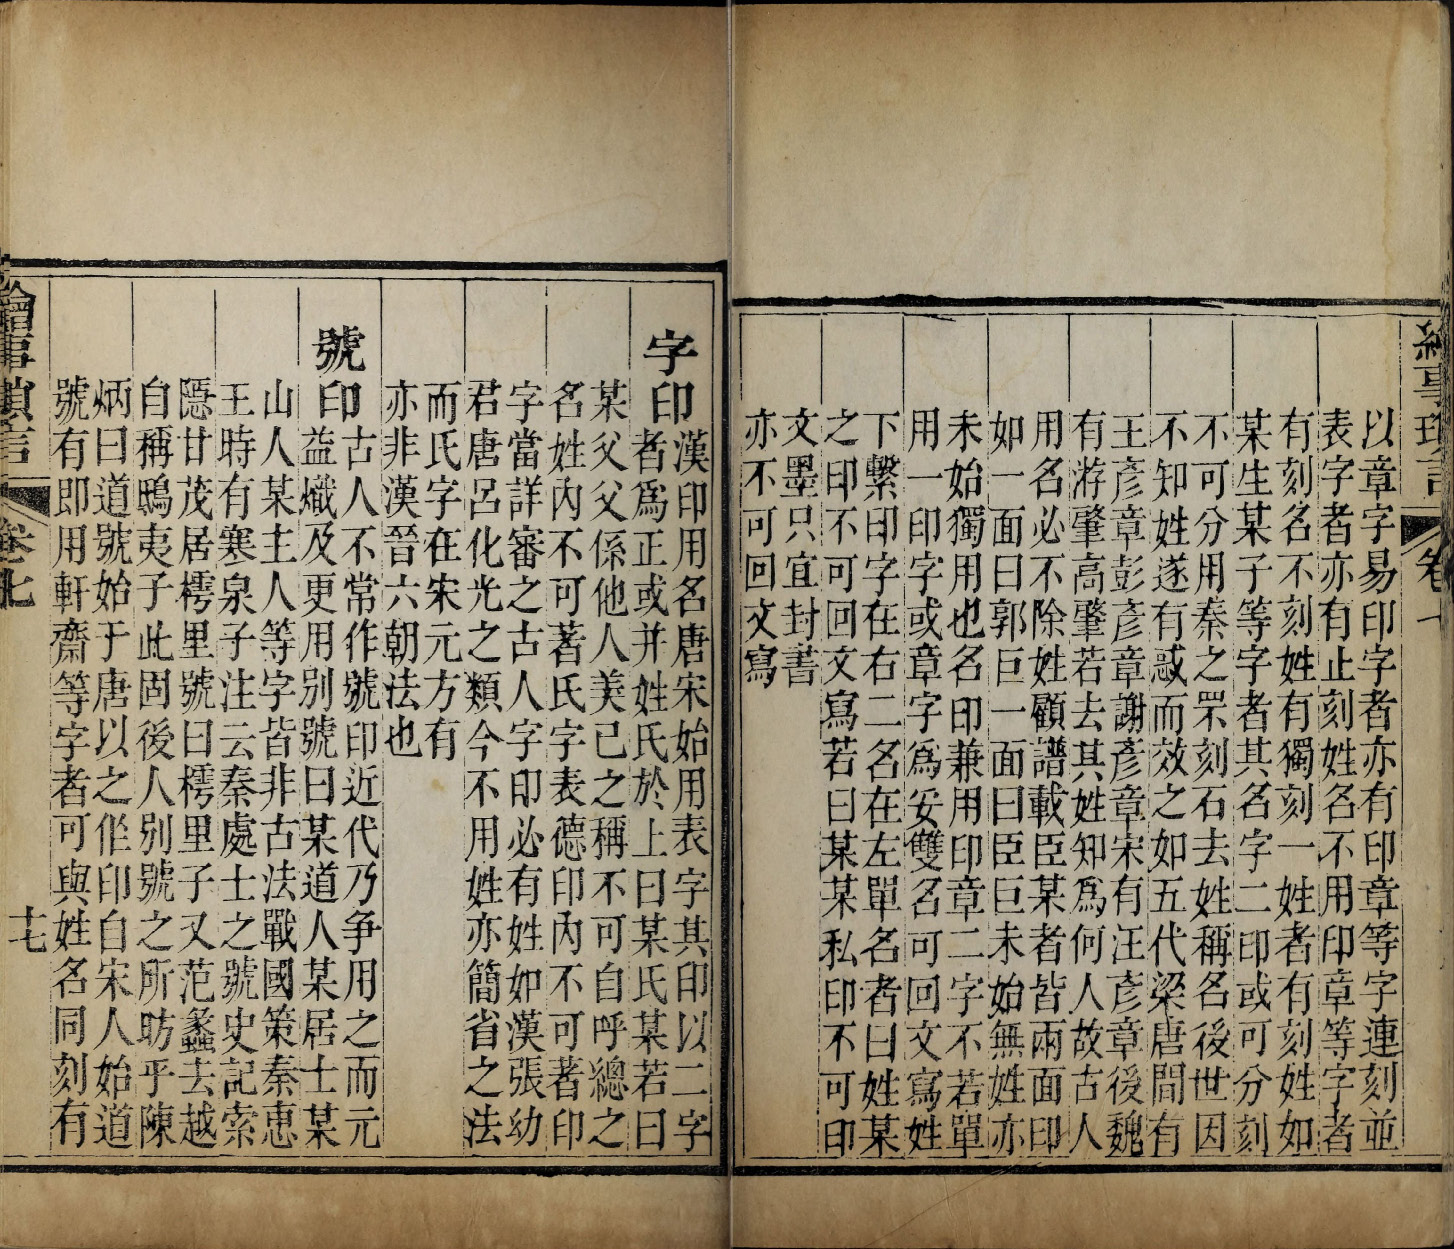 以章字易印字者亦有印章等字連刻並
表字者亦有止刻姓名不用印章等字者
有刻名不刻姓有獨刻一姓者有刻姓如
某生某子等字者其名字二印或可分刻
不可分用秦之罘刻石去姓稱名後世因
不知姓遂有惑而效之如五代梁唐間有
王彥章彭彥章謝彥章宋有汪彥章後魏
有游肇高肇若去其姓知爲何人故古人
用名必不除姓顧譜載臣某者皆兩面印
如一面曰郭巨一面曰臣巨未始無姓亦
未始獨用也名印兼用印章二字不若單
用一印字或章字爲妥雙名可回文寫姓
下繫印字在右二名在左單名者曰姓某
之印不可回文寫若曰某某私印不可印
文墨只宜封書
亦不可回文寫
字印
漢印用名唐宋始用表字其印以二字
者爲正或并姓氏於上曰某氏某若曰
某父父係他人美己之稱不可自呼總之
名姓內不可著氏字表德印內不可著印
字當詳審之古人字印必有姓如漢張幼
君唐呂化光之類今不用姓亦簡省之法
而氏字在宋元方有
亦非漢晉六朝法也
號印
古人不常作號印近代乃争用之而元
益熾及更用别號曰某道人某居士某
山人某主人等字皆非古法戰國策秦惠
王時有寒泉子注云秦處士之號史記索
隱甘茂居樗里號曰樗里子又范蠡去越
自稱鴟夷子此固後人别號之所昉乎陳
炳曰道號始于唐以之作印自宋人始道
號有即用軒齋等字者可與姓名同刻有
繪事瑣言
卷七
十七